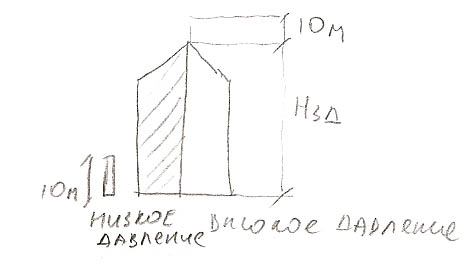 10м
Нзд
10м
низкое давление
высокое давление